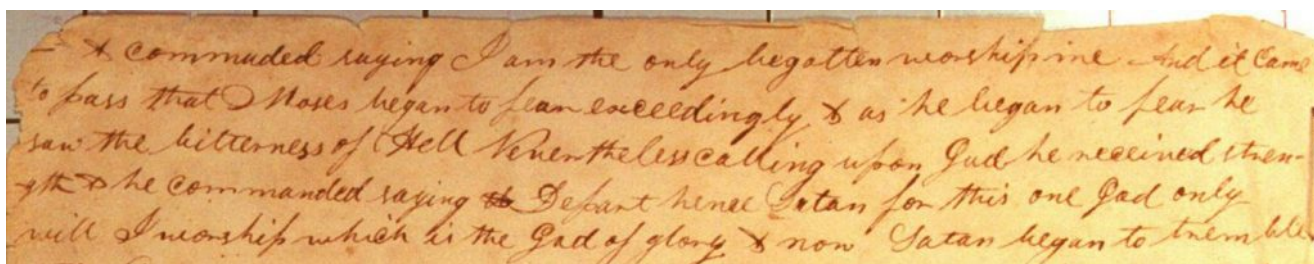 & commuded saying I am the only begotten worship me And it came
to pass that Moses began to fear exceedingly & as he began to fear he
saw the bitterness of Hell Nevertheless calling upon God he received stren-
gth & he commanded saying Depart hence Satan for this one God only
will I worship which is the God of glory & now Satan began to tremble